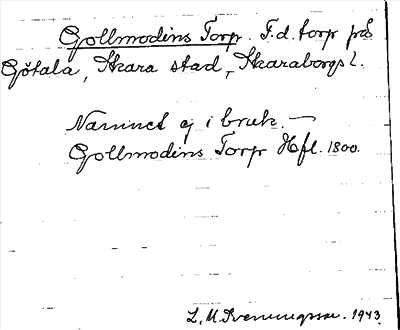 Gollmodins Torp. F.d. torp på
Götala, Skara stad, Skaraborgs l.
Namnet ej i bruk. —
Gollmodins Torp Hfl. 1800.
L. M. Svenungsson. 1943